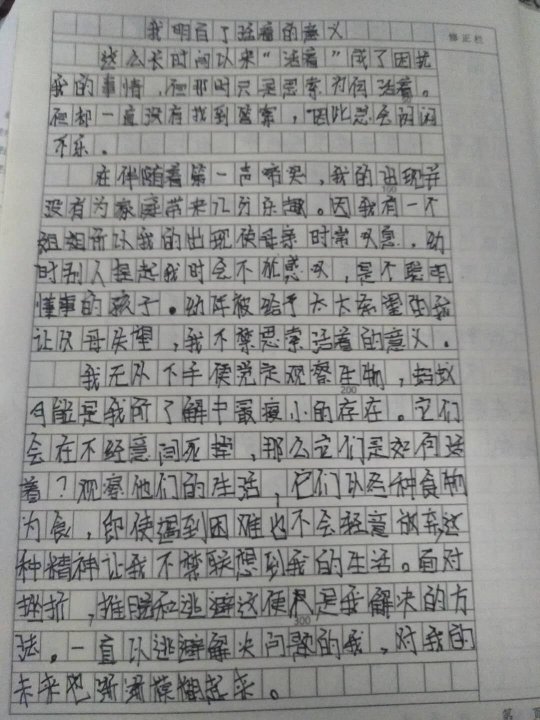 我明白了活着的意义
修正栏
这么长时间以来“活着”成了困扰
我的事情,在那时只是思索为何活着。
在却一直没有找到答案,因此总会闷闷
不乐。
在伴随着第一声啼哭,我的出现并
没有为家庭带来几分乐趣。因我有一个
姐姐所以我的出现使母亲时常叹息,幼
时别人提起我时会不禁感叹,是个聪明
懂事的孩子。幼年被给予太大希望的我
让父母失望,我不禁思索活着的意义。
我无从下手便决定观察生物,蚂蚁
200
可能是我所了解中最瘦小的存在。它们
会在不经意间死掉,那么它们是如何活
着?观察他们的生活,它们以各种食物
为食,即使遇到困难也不会轻意放弃这
种精神让我不禁联想到我的生活。面对
挫折,推脱和逃避这便只是我解决的方
300
法。一直以逃避解决问题的我,对我的
未来也渐渐模糊起来。
第 页